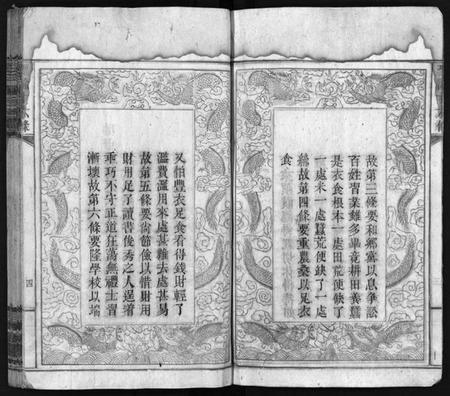 故第三條要和鄉黨以息爭訟
百姓習業雖多畢竟耕田養蠶
是衣食根本一處田荒便缺了
一處米一處蠶荒便缺了一處
絲故第四條要重農桑以足衣
食
又怕豐衣足食看得錢財輕了
濫費濫用來處甚難去處甚易
故第五條要尚節儉以惜財用
財用足了讀書俊秀之人逞着
乖巧不守正道狂蕩無禮士習
漸壞故第六條要隆學校以端
四